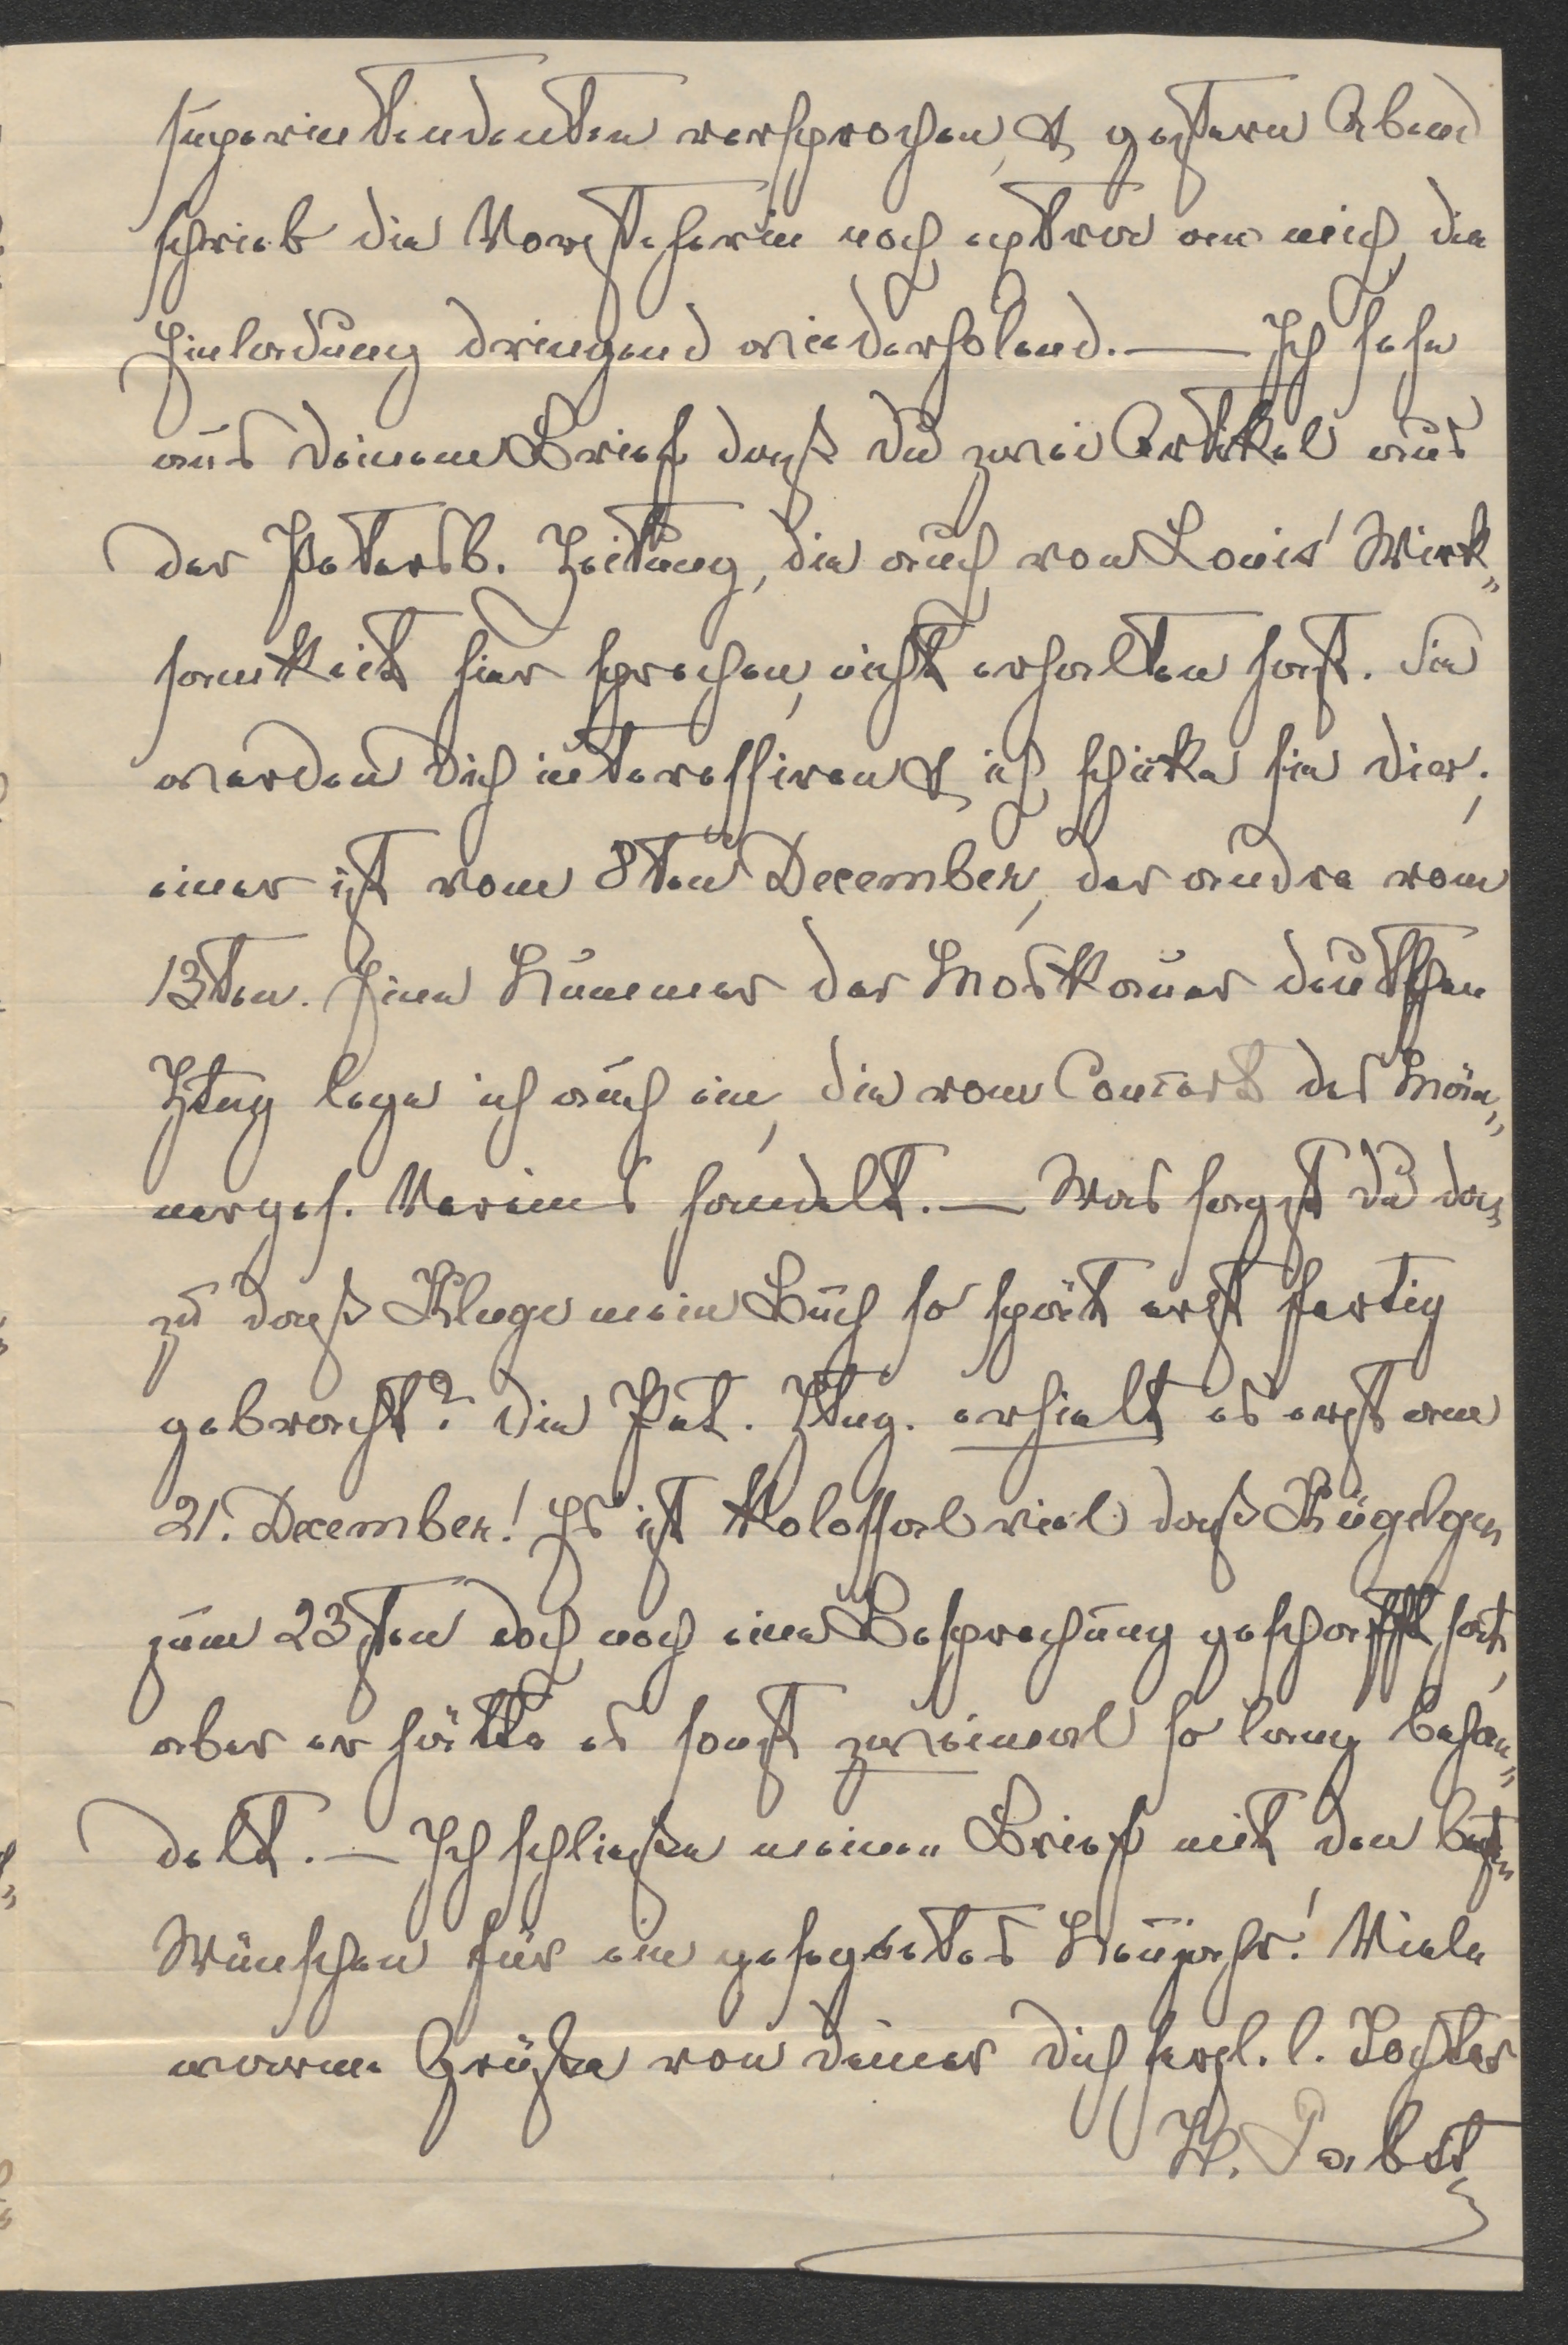 superintendenten versprochen, & gestern Abend
schrieb die Vorsteherin noch extra an mich, die
Einladung dringend wiederholend. — Ich sehe
aus Deinem Brief daß Du zwei Artikel aus
der Petersb. Zeitung, die auch von Louis' Wirk„
samkeit hier sprechen, nicht erhalten hast. Sie
werden Dich interessiren & ich schicke sie Dir;
einer ist vom 8ten December, der andre vom
13ten. Eine Nummer der Moskauer deutschen
Ztng lege ich auch ein, die vom Concert des Män„
nerges. Vereins handelt. — Was sagst Du da„
zu daß Kluge mein Buch so spät erst fertig
gebracht? Die Pet. Ztng. erhielt es erst am
21. December! Es ist kolossal viel daß Kügelgen
zum 23sten doch noch eine Besprechung geschafft hat,
aber er hätte es sonst zweimal so lang behan„
delt. — Ich schließe meinen Brief mit den besten
Wünschen für ein gesegnetes Neujahr! Viele
warme Grüße von Deiner Dich herzl. l. Tochter
H. Pabst